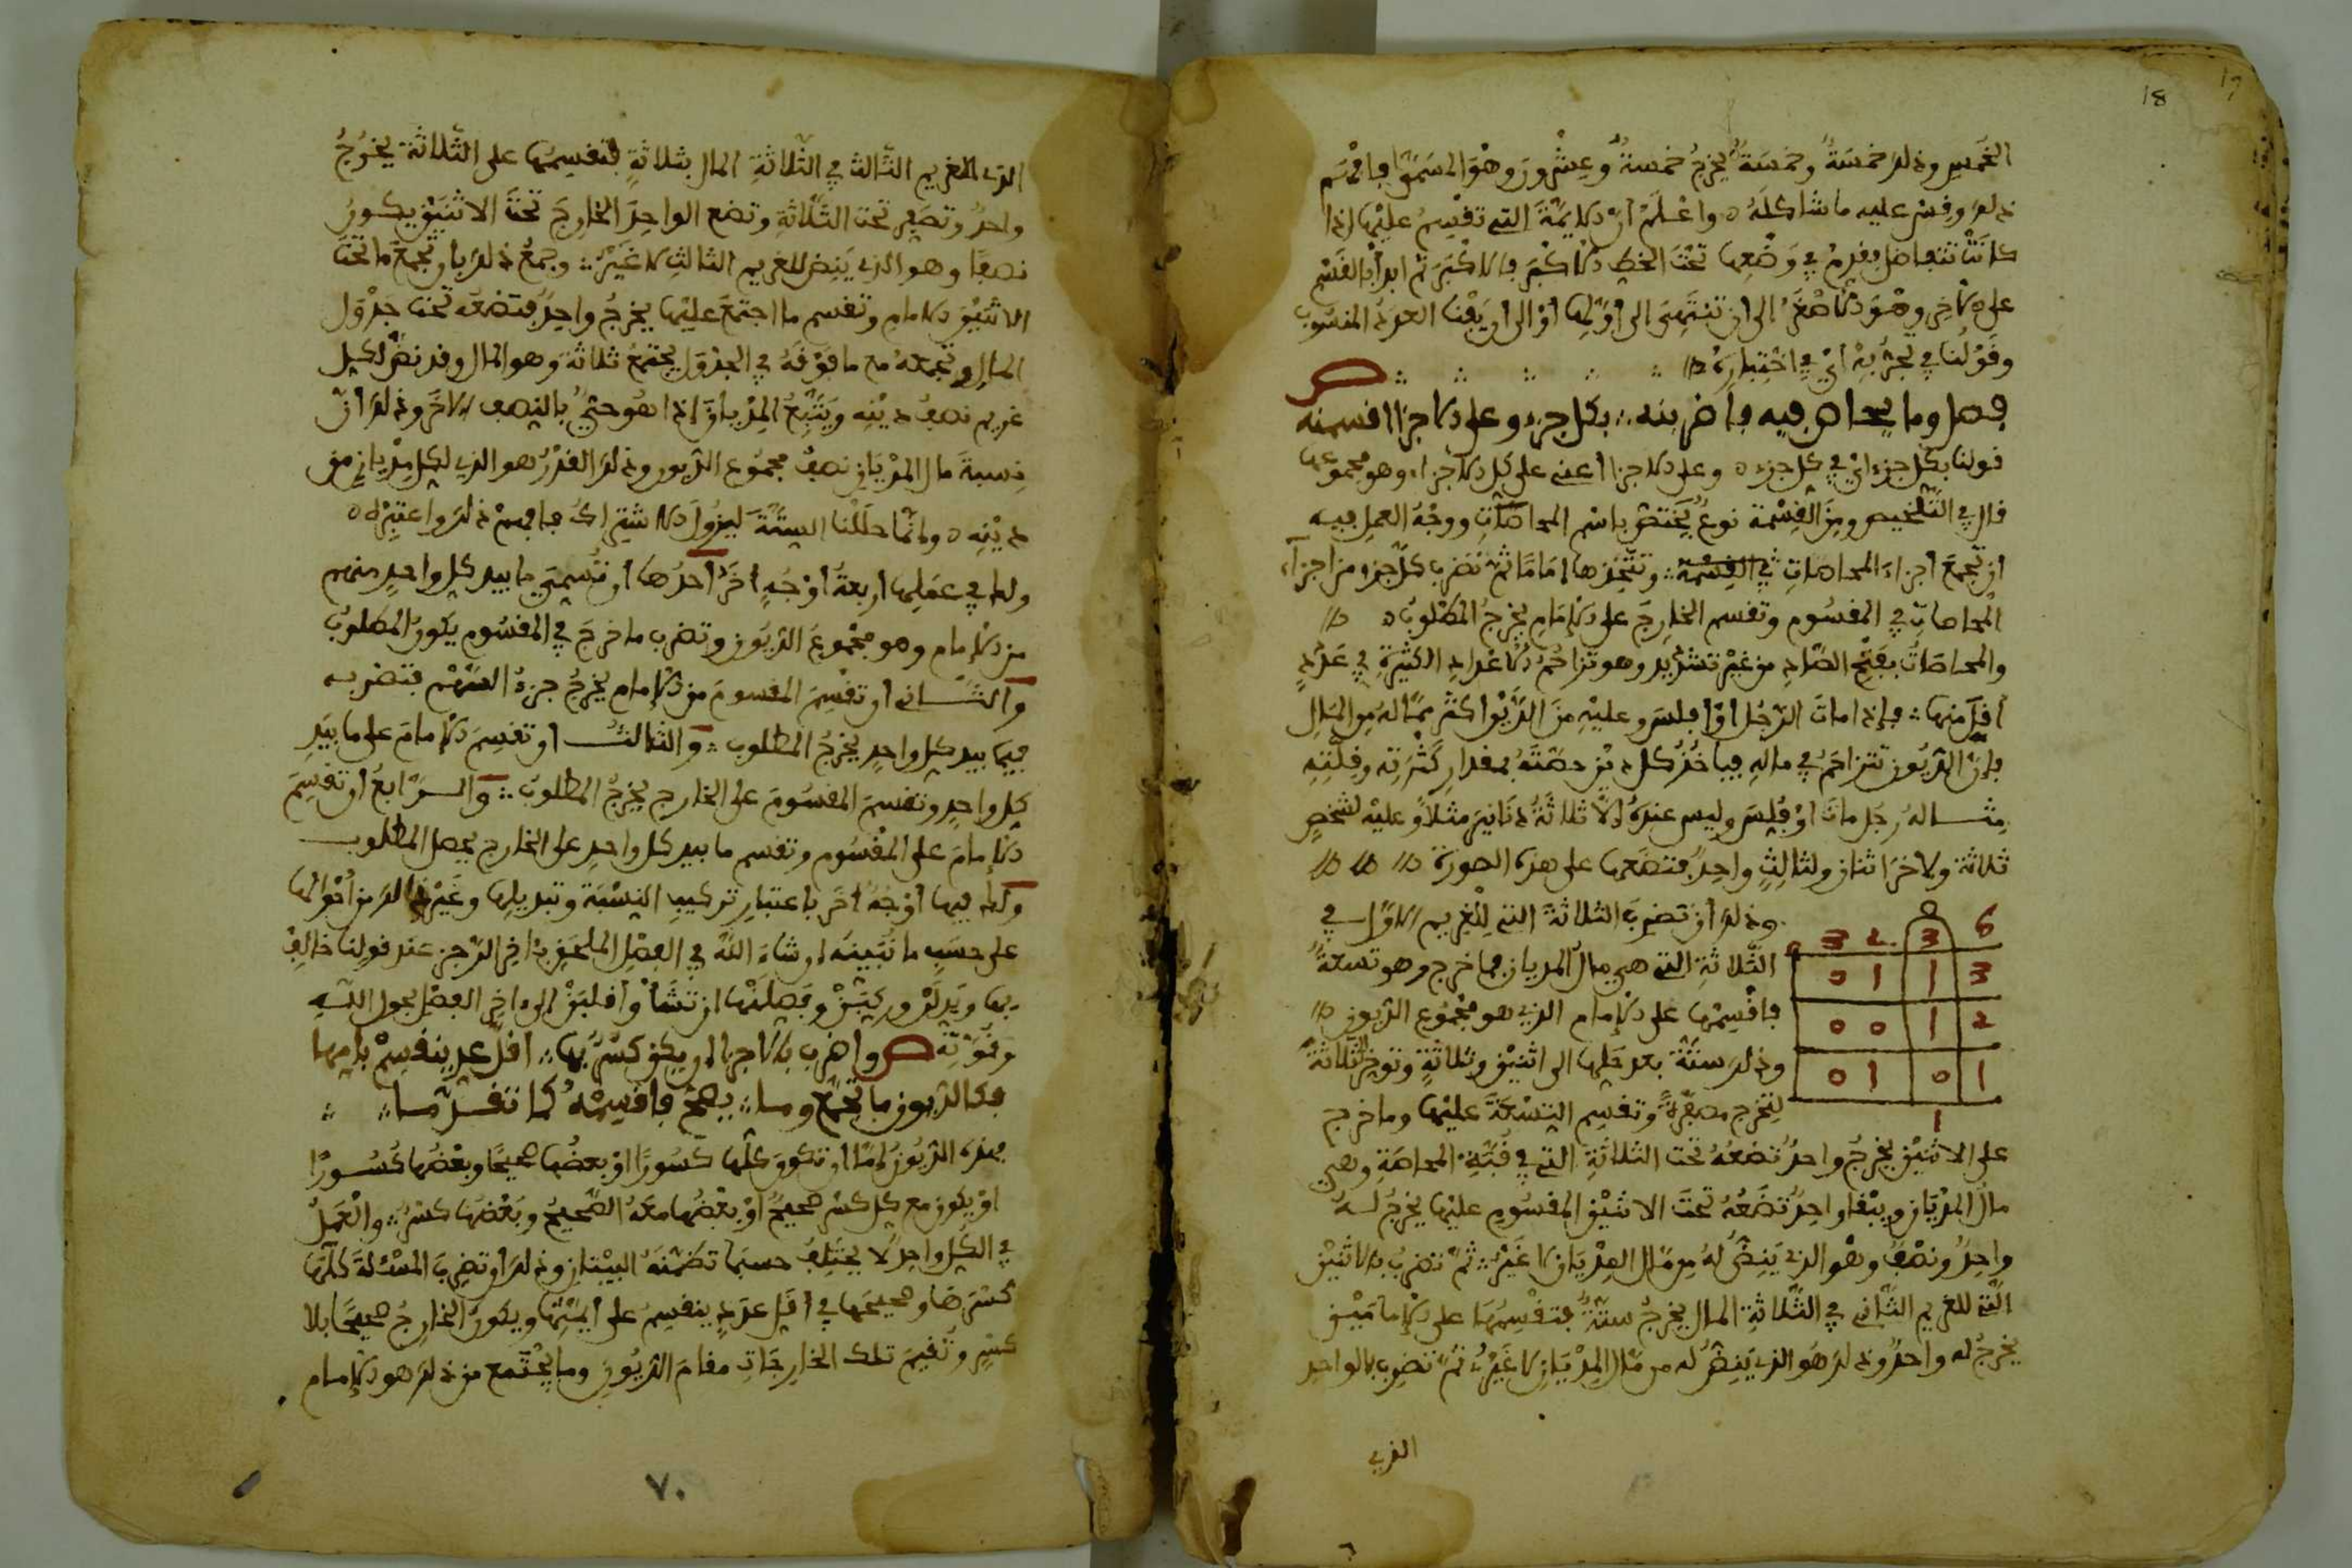 18
19
الخمس وذلك خمسة وخمسة يخرج خمسة وعشرون وهو المسمى فافهم
ذلك وقس عليه ما شاكله واعلم أن الأيمة التي تقسم عليها إذا
كانت تتفاضل فقدم في وضعها تحت الخط الأكبر فالأكبر ثم ابدأ بالقسم
على الآخر وهو الأصغر إلى أن تنتهي إلى أولها أو إلى أن يفنا العدد المنسوب
وقولنا في تجربه أي في اختباره
فصل وما يحاص فيه فاضربنه بكل جزء وعلى الأجزا اقسمنه
قولنا بكل جزء أي في كل جزء وعلى الأجزا أعني على كل الأجزاء وهو مجموعها
قال في التلخيص ومن القسمة نوع يختص باسم المحاصات ووجه العمل فيه
أن تجمع أجزاء المحاصات وتتخذها إماما ثم تضرب كل جزء من أجزاء
المحاصات في المقسوم وتقسم الخارج على الإمام يخرج المطلوب
والمحاصات بفتح الصاد من غير تشديد وهو تزاحم الأعداد الكثيرة في عدد
أقل منها فإذا مات الرجل أو أفلس وعليه من الدين أكثر مما له من المال
فإن الديون تتزاحم في ماله فيأخذ كل دين حصته بمقدار كثرته وقلته
مثاله رجل مات أو فلس وليس عنده إلا ثلاثة دنانير مثلا وعليه لشخص
ثلاثة ولآخر اثنان ولثالث واحد فتضعها على هذه الصورة
وذلك أن تضرب الثلاثة التي للغريم الأول في
الثلاثة التي هي مال المديان فما خرج وهو تسعة
فاقسمها على الإمام الذي هو مجموع الديون
وذلك ستة بعد حلها إلى اثنين وثلاثة وتوخر الثلاثة
لتخرج مصفرة وتقسم التسعة عليها وما خرج
6 3 2 3
3 1 1 0
2 1 0 0
1 0 1 0
1
على الاثنين يخرج واحد تضعه تحت الثلاثة التي في قبة المحاصة وهي
مال المديان ويبقا واحد تضعه تحت الاثنين المقسوم عليها يخرج له
واحد ونصف وهو الذي ينض له من مال المديان لا غير ثم تضرب الاثنين
التي للغريم الثاني في الثلاثة المال يخرج ستة فتقسمها على الإمامين
يخرج له واحد وذلك هو الذي ينض له من مال المديان لا غير ثم تضرب الواحد
الذي
الذي للغريم الثالث في الثلاثة المال بثلاثة فتقسمها على الثلاثة يخرج
واحد وتصفير تحت الثلاثة وتضع الواحد الخارج تحت الاثنين يكون
نصفا وهو الذي ينض للغريم الثالث لا غير وجمع ذلك بأن تجمع ما تحت
الاثنين الإمام وتقسم ما اجتمع عليها يخرج واحد فتضعه تحت جدول
المال وتجمعه مع ما فوقه في الجدول يجتمع ثلاثة وهو المال وقد نض لكل
غريم نصف دينه ويتبع المديان إذا هو حي بالنصف الآخر وذلك أن
نسبة مال المديان نصف مجموع الديون وذلك القدر هو الذي لكل مديان من
دينه وإنما حللنا الستة ليزول الاشتراك فافهم ذلك واعتبره
ولها في عملها أربعة أوجه أخر أحدها أن تسمي ما بيد كل واحد منهم
من الإمام وهو مجموع الديون وتضرب ما خرج في المقسوم يكون المطلوب
والثاني أن تقسم المقسوم من الإمام يخرج جزء السهم فتضربه
فيما بيد كل واحد يخرج المطلوب والثالث أن تقسم الإمام على ما بيد
كل واحد وتقسم المقسوم على الخارج يخرج المطلوب والرابع أن تقسم
الإمام على المقسوم وتقسم ما بيد كل واحد على الخارج يحصل المطلوب
ولها فيها أوجه أخر باعتبار تركيب النسبة وتبديلها وغير ذلك من أحوالها
على حسب ما نبينه إن شاء الله في الفصل الملحق بآخر الرجز عند قولنا خالف
بها وبدلن وركبن وفصلنها إن تشأ وأقلبن إلى آخر الفصل بحول الله
وقوته واضرب بالأجزا إن يكن كسر بها أقل عدد ينقسم بإمها
فكالديون ما تجمع وما يصح فاقسمه كما تقدما
فهذه الديون إما أن تكون كلها كسورا أو بعضها صحيحا وبعضها كسورا
أو يكون مع كل كسر صحيح أو بعضها معه الصحيح وبعضها كسر والعمل
في الكل واحد لا يختلف حسبما تضمنه البيتان وذلك أن تضرب المسئلة كلها
كسرها وصحيحها في أقل عدد ينقسم على أيمتها ويكون الخارج صحيحا بلا
كسر وتقيم تلك الخارجات مقام الديون وما يجتمع من ذلك هو الإمام
٧٠